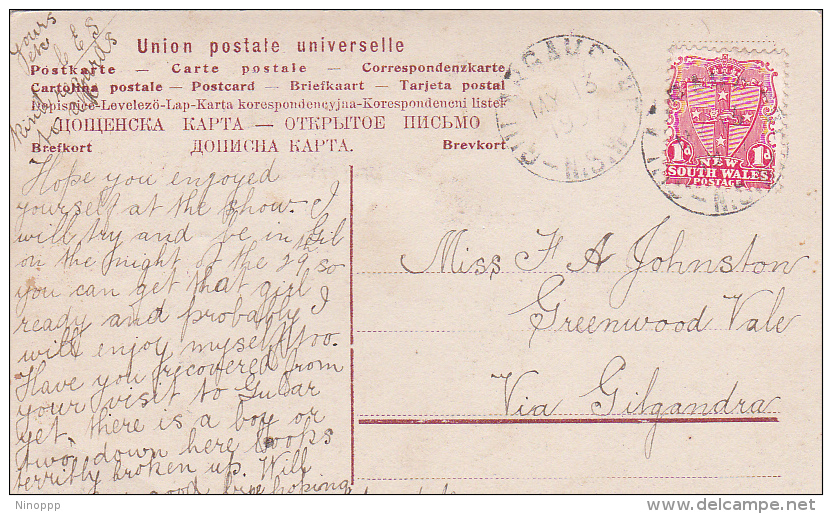 Yours
etc
ES
Kind regards
to
Union postale universelle
Postkarte — Carte postale — Correspondenzkarte
Cartolina postale — Postcard — Briefkaart — Tarjeta postal
Dopisnice-Levelező-Lap-Karta korespondencyjna-Korespondencni listek
ДОЩЕНСКА КАРТА — ОТКРЫТОЕ ПИСЬМО
Brefkort ДОПИСНА КАРТА. Brevkort
MAY 13
19
N.S.W
1d NEW 1d
SOUTH WALES
POSTAGE
Hope you enjoyed
yourself at the show. I
will try and be in Gil
on the night of the 29th so
you can get that girl
ready and probably I
will enjoy myself too.
Have you recovered from
your visit to Gular
yet, there is a boy or
two down here looks
terribly broken up. Will
hoping
Miss F A Johnston
Greenwood Vale
Via Gilgandra
Ninoppp
delcampe.net